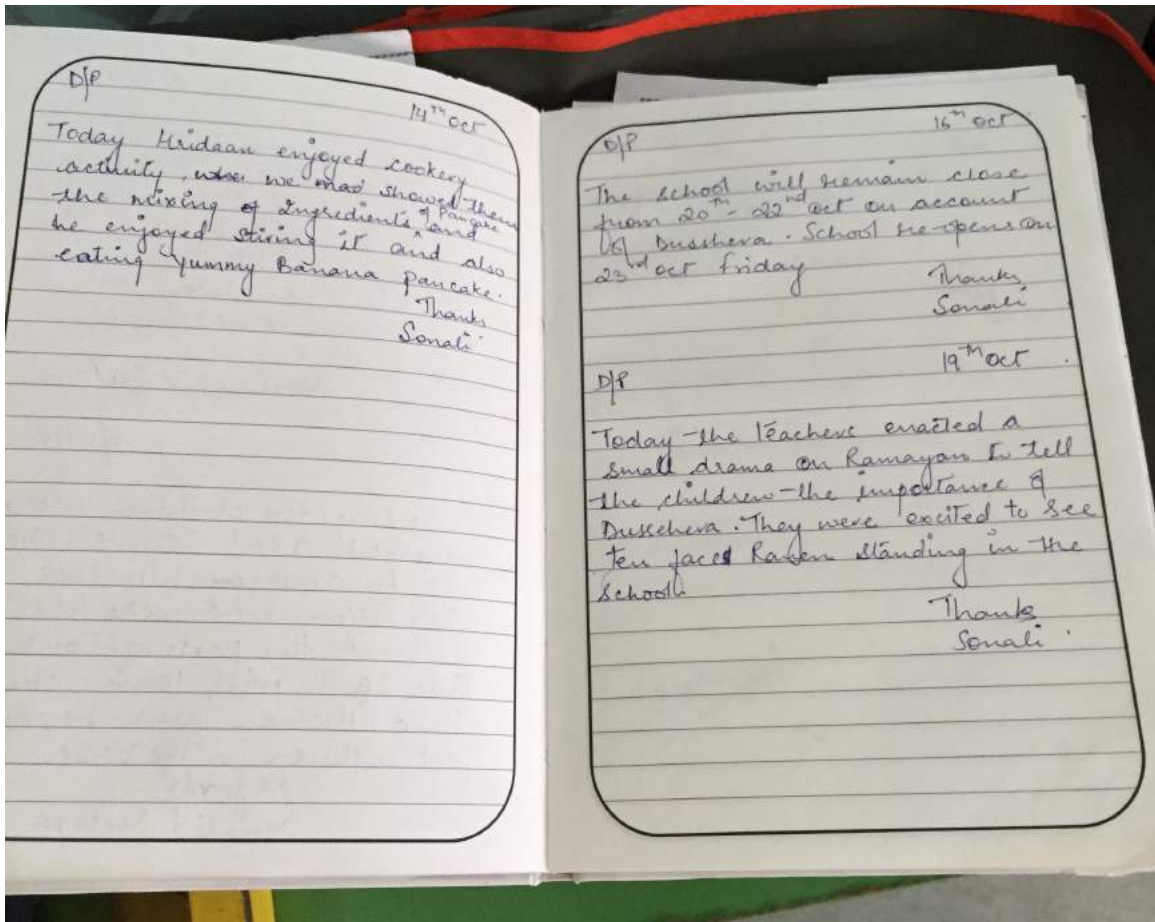 D/P
14th Oct
Today Hridaan enjoyed cookery
activity, we showed them
the mixing of Ingredients of Pancake and
he enjoyed stiring it and also
eating yummy Banana pancake.
Thanks
Sonali
D/P
16th Oct
The School will remain close
from 20th - 22nd Oct on account
of Dusshera. School re-opens on
23rd Oct friday
Thanks
Sonali
D/P
19th Oct
Today the Teachers enacted a
small drama on Ramayan to tell
the children the importance of
Dusshera. They were excited to see
Ten faced Raven standing in the
School.
Thanks
Sonali